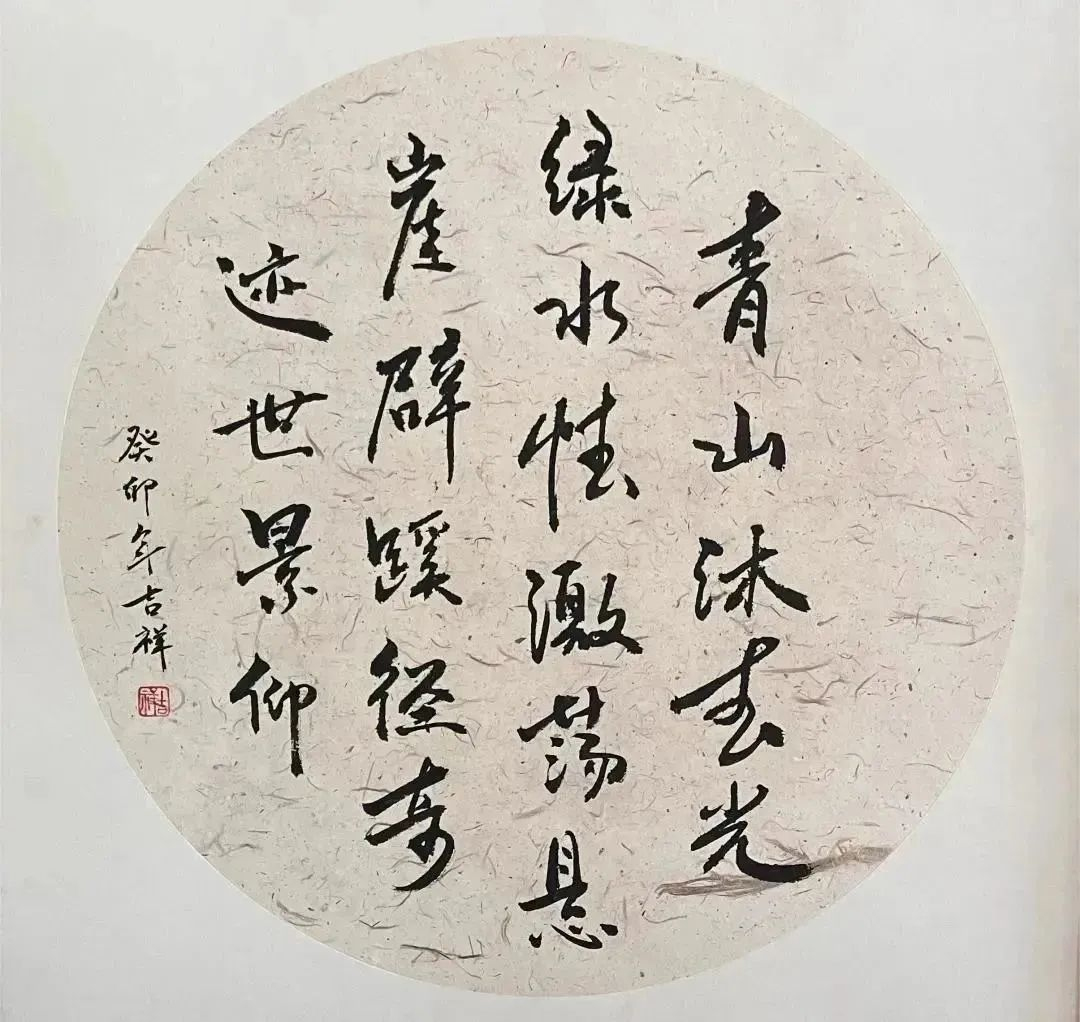 青山沐春光
绿水性激荡悬
崖辟蹊径奇
迹世景仰
癸卯年吉祥
吉祥